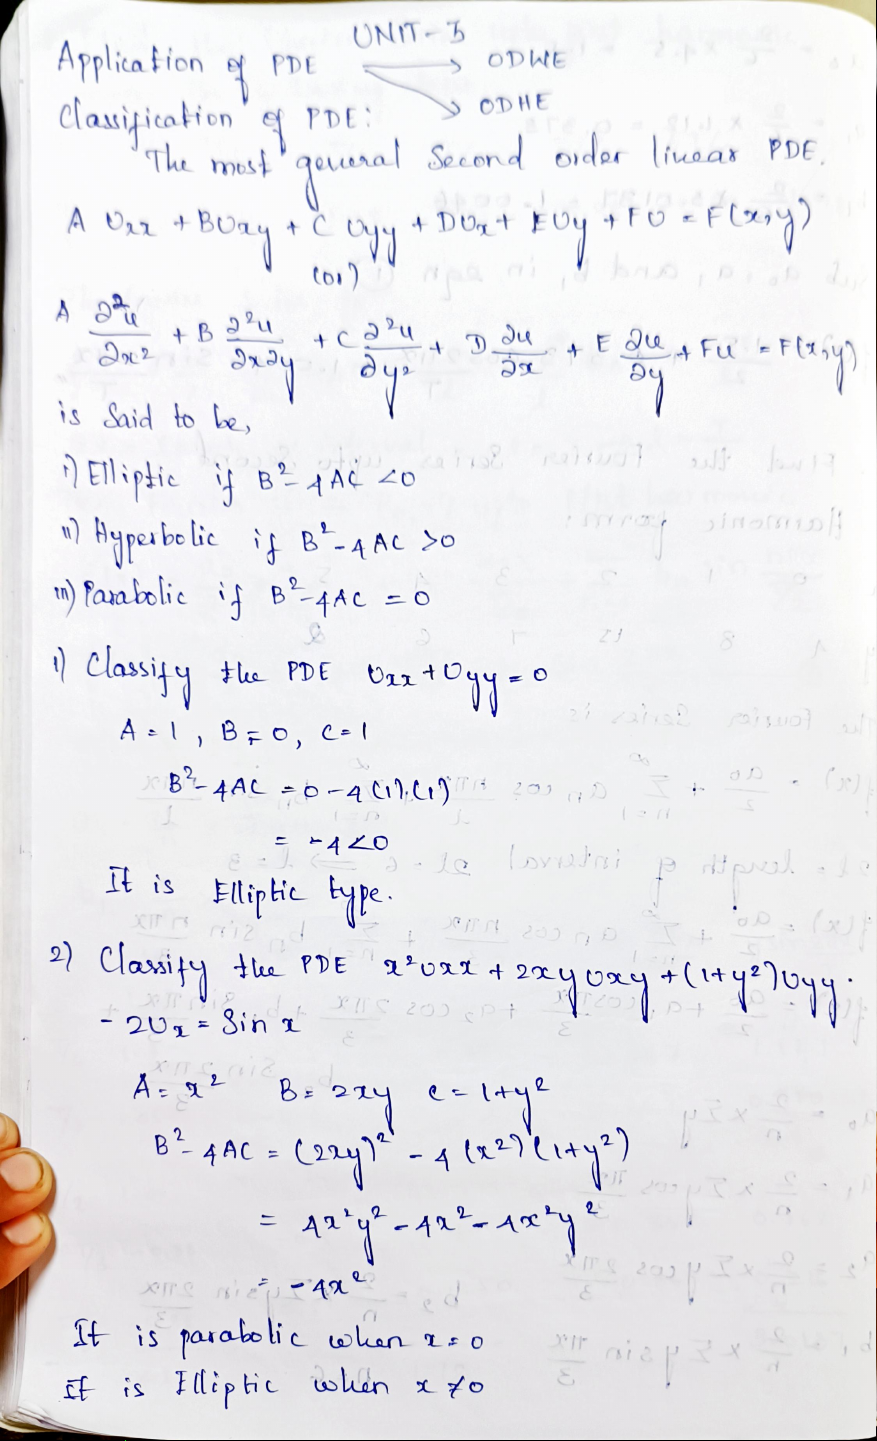 UNIT-3
Application of PDE → ODWE
→ ODHE
Classification of PDE:
The most general Second order linear PDE.
A Uxx + BUxy + C Uyy + DUx + EUy + FU = F(x,y)
(or)
A ∂²u/∂x² + B ∂²u/∂x∂y + C ∂²u/∂y² + D ∂u/∂x + E ∂u/∂y + Fu = F(x,y)
is Said to be,
i) Elliptic if B²-4AC <0
ii) Hyperbolic if B²-4AC >0
iii) Parabolic if B²-4AC = 0
1) Classify the PDE Uxx + Uyy = 0
A = 1, B = 0, C = 1
B²-4AC = 0-4(1).(1)
= -4<0
It is Elliptic type.
2) Classify the PDE x²Uxx + 2xyUxy + (1+y²)Uyy
- 2Ux = Sin x
A = x² B = 2xy C = 1+y²
B²-4AC = (2xy)² - 4(x²)(1+y²)
= 4x²y² - 4x² - 4x²y²
= -4x²
It is parabolic when x = 0
It is Elliptic when x ≠ 0